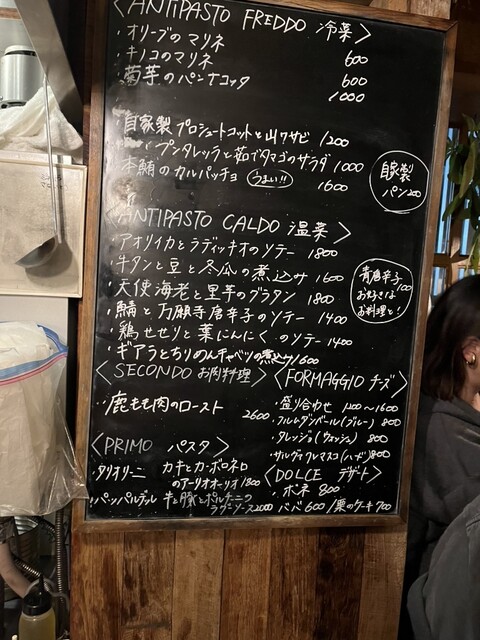 〈ANTIPASTO FREDDO 冷菜〉
・オリーブのマリネ 600
・キノコのマリネ 600
・菊芋のパンナコッタ 1000
自家製プロシュートコットと山ワサビ 1200
プンタレッラと茹でタマゴのサラダ 1000
本鮪のカルパッチョ うまい!! 1600
自家製
パン200
〈ANTIPASTO CALDO 温菜〉
・アオリイカとラディッキオのソテー 1800
・牛タンと豆と冬瓜の煮込み 1600
・天使海老と里芋のグラタン 1800
・鯖と万願寺唐辛子のソテー 1400
・鶏せせりと葉にんにくのソテー 1400
・ギアラとちりめんチャベツの煮込み1600
青唐辛子100
お好きな
お料理と!
〈SECONDO お肉料理〉
・鹿もも肉のロースト
2600
〈FORMAGGIO チーズ〉
・盛り合わせ 1200〜1600
・フルムダンベール(ブルー) 800
・タレッジョ(ウォッシュ) 800
800
〈PRIMO パスタ〉
・タリオリーニ カキとカーボロネロ
のアーリオオーリオ1800
・パッパルデッレ 牛と豚とポルチーニの
ラグーソース2000
〈DOLCE デザート〉
・ボネ 800
ババ 600/栗のケーキ 700